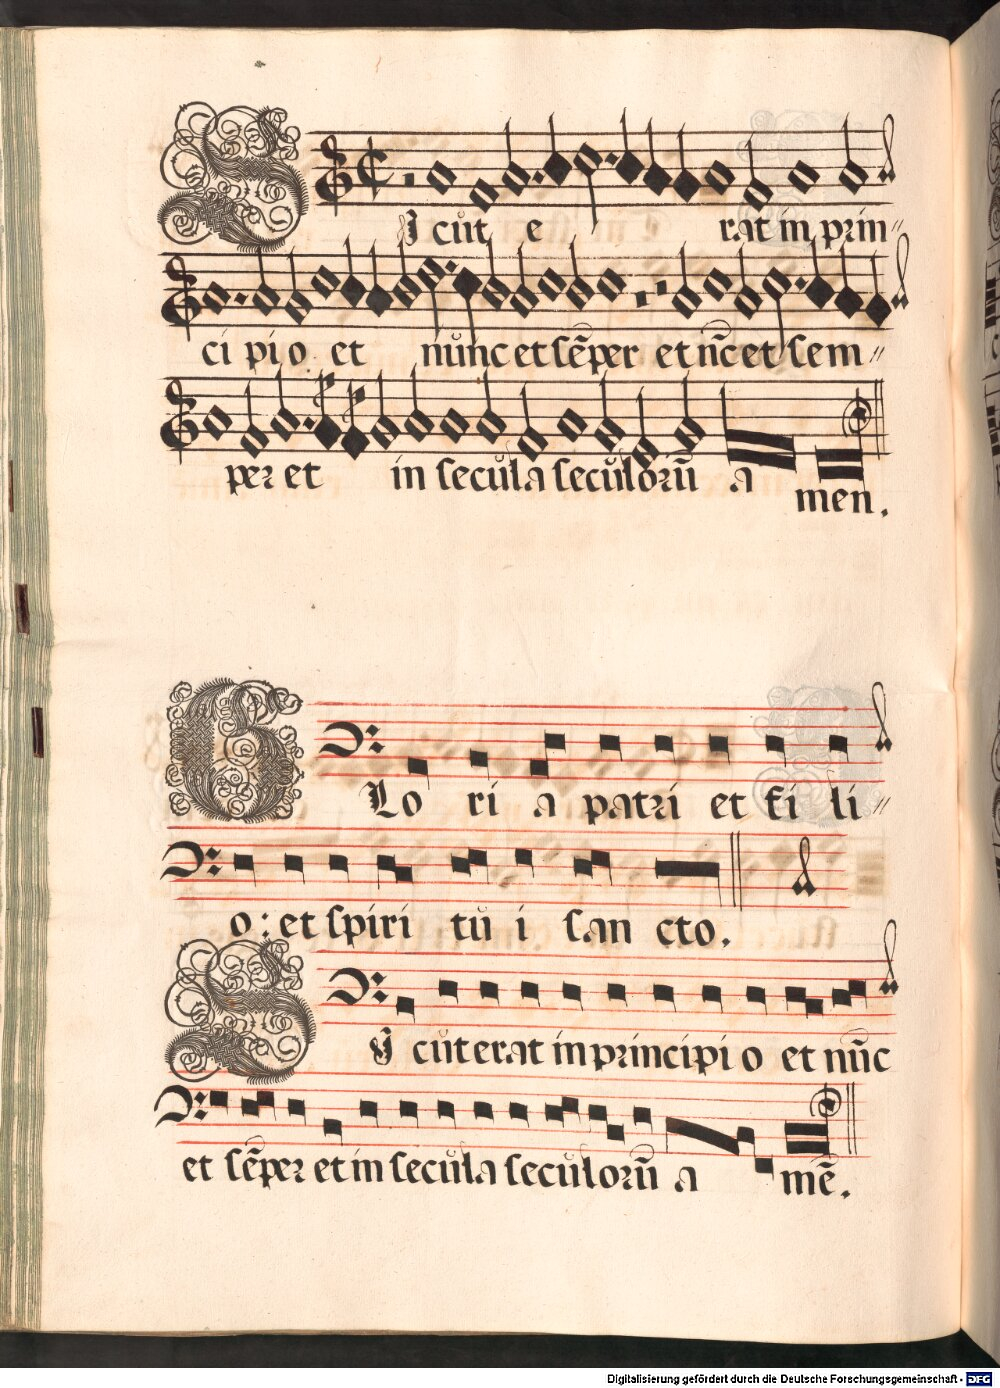 Sicut erat in prin//
cipio et nūnc et sēper et nc̄ et sem//
per et in secula seculorū a
men.
Gloria patri et fi li//
o: et spiri tui sancto.
Sicut erat in principio et nūc
et sēper et in secula seculorū a mē.
Digitalisierung gefördert durch die Deutsche Forschungsgemeinschaft - DFG